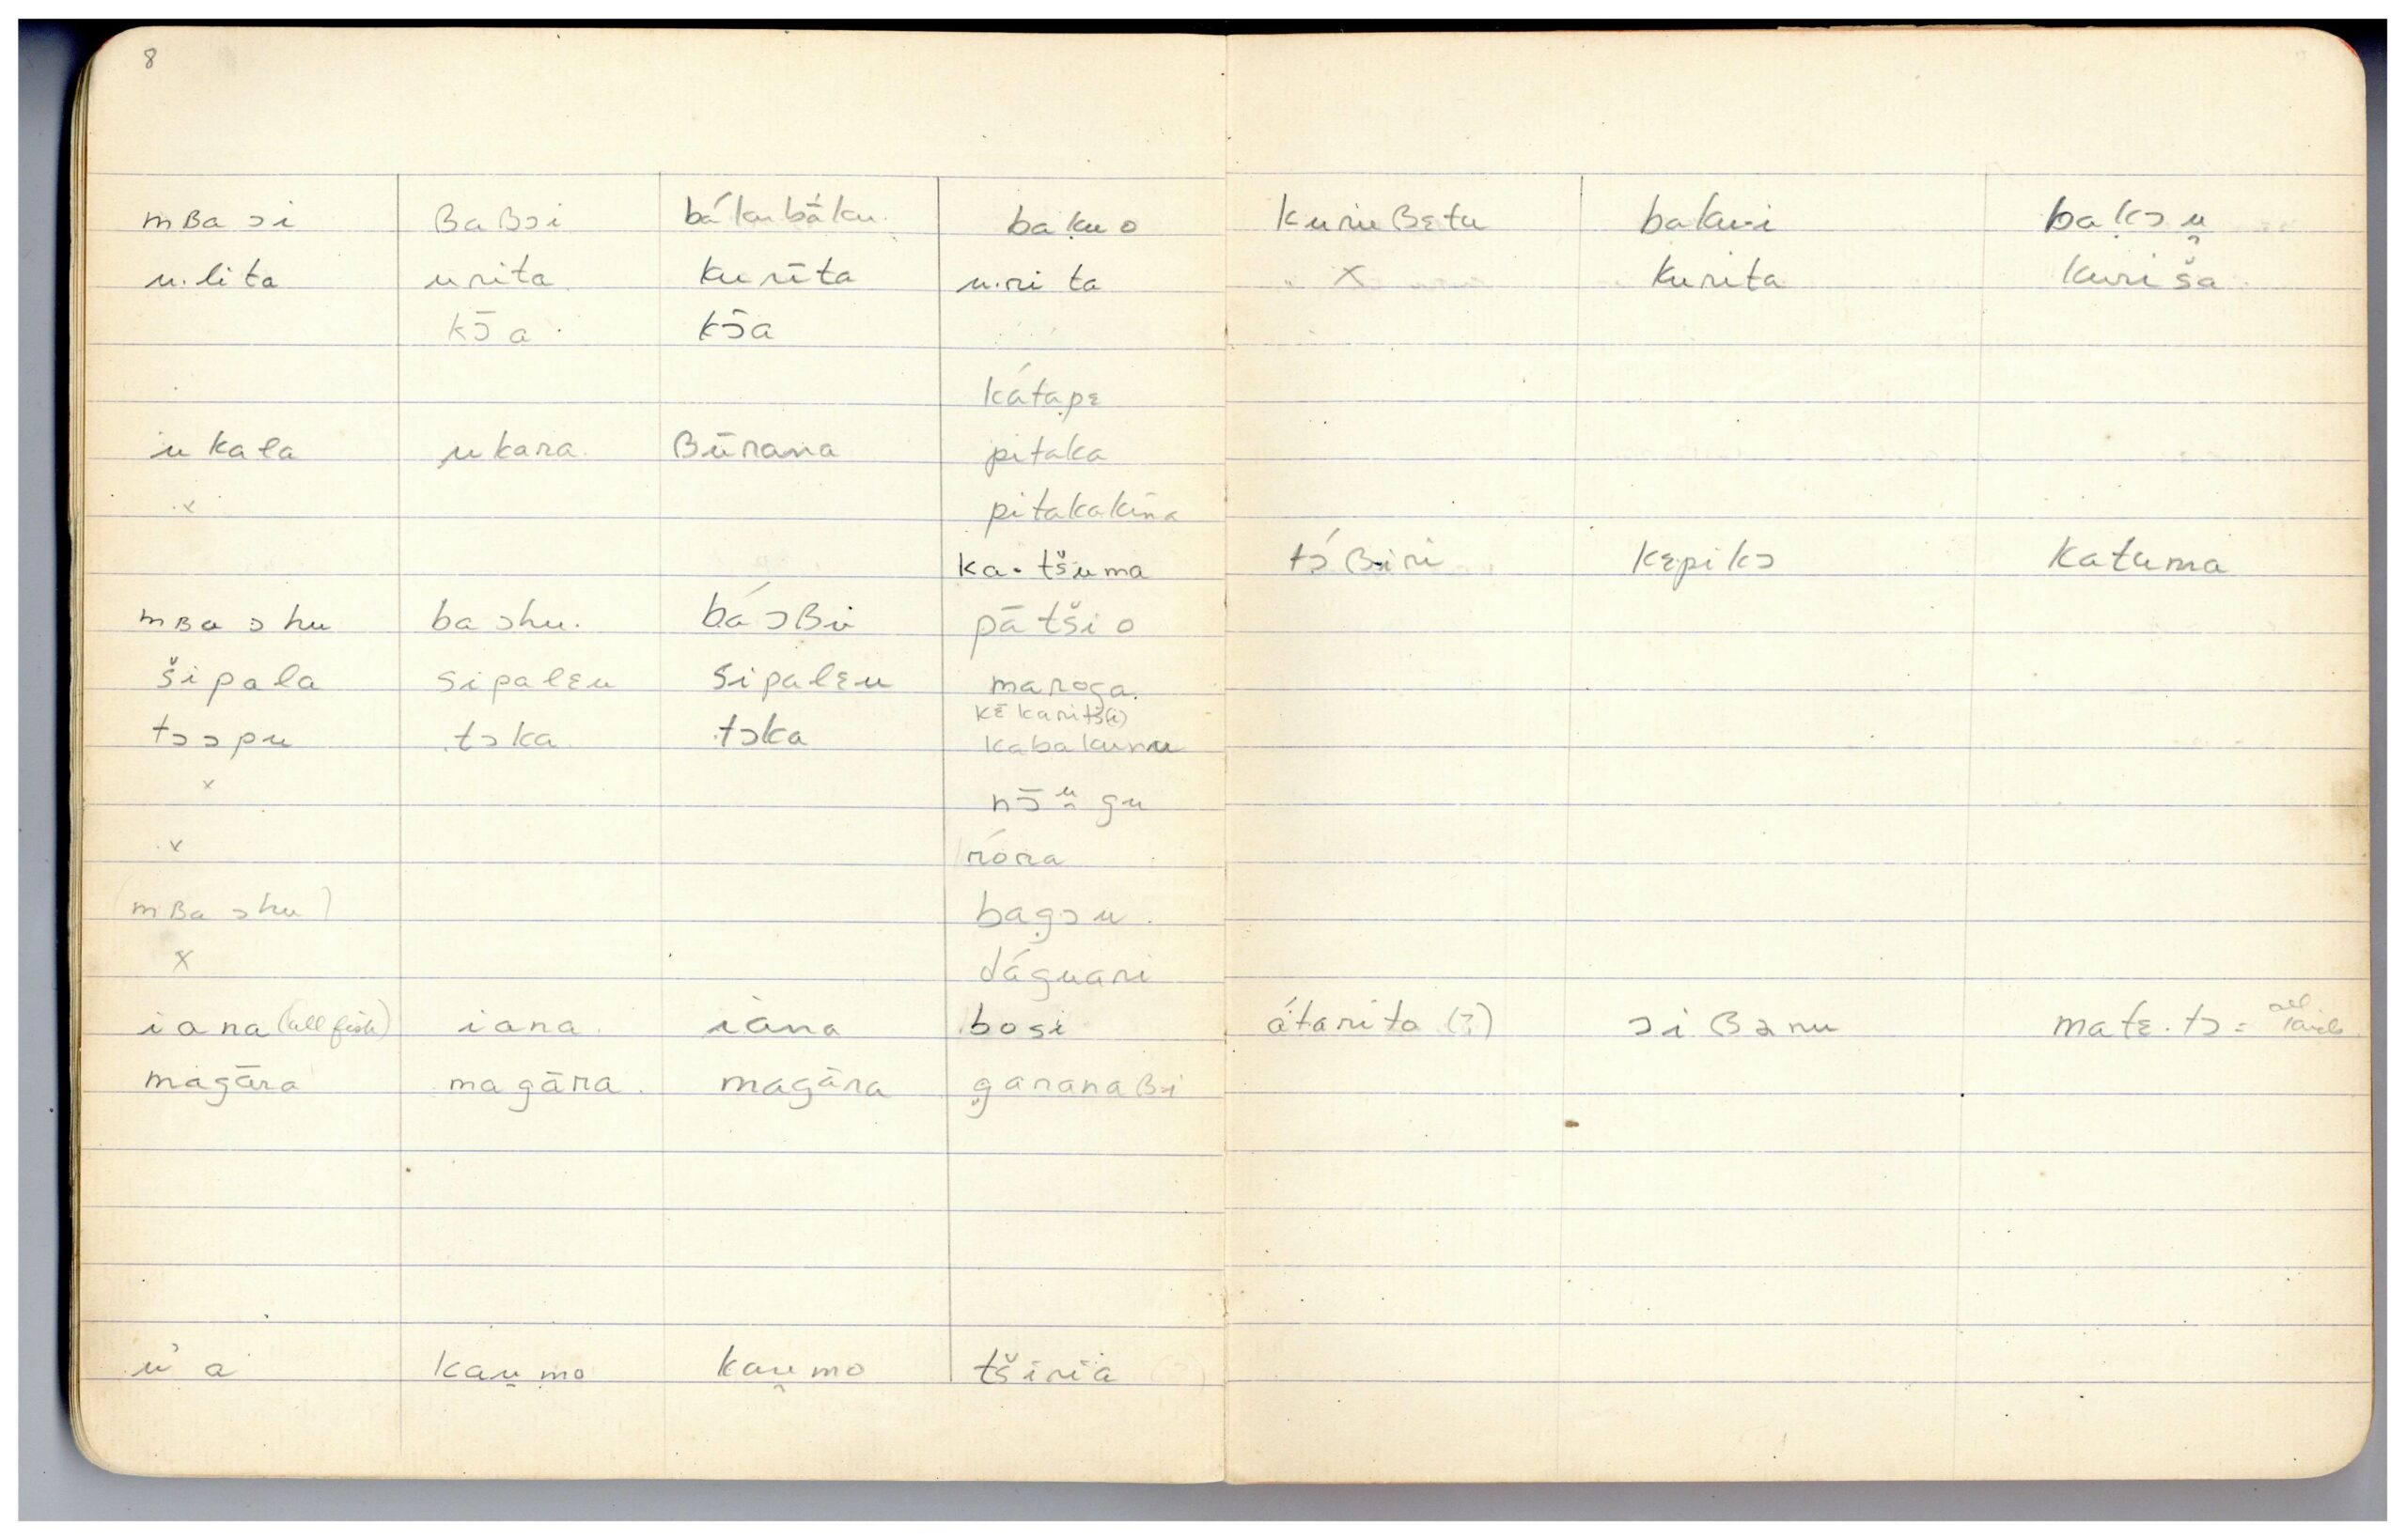 8
mBa ɔi BaBɔi bákubáku. bakuo kuriuBɛtu bakui bakɔu̯
u.lita urita kurīta u.ri ta x kurita kuriša
kɔ̄a kɔ̄a
kátapɛ
ukala ukara. Būrana pitaka
x pitakakina
ka. tšuma tɔ́Biri kɛpikɔ katuma
mBa ɔhu ba ɔhu. báɔBu pātšio
šipala sipalɛu sipalɛu maroga.
kɛ̄karitš(i)
tɔɔpu tɔka tɔka kabakunu
x nɔ̄u̯gu
x róra
(mBa ɔhu) bagɔu.
x dáguari
iana (all fish) iana. iāna bosi átarito (?) ɔiBɔnu matɛ.tɔ = all kinds
magāra magāra. magāra garanaBi
u'a kau̯mo kau̯mo tširia